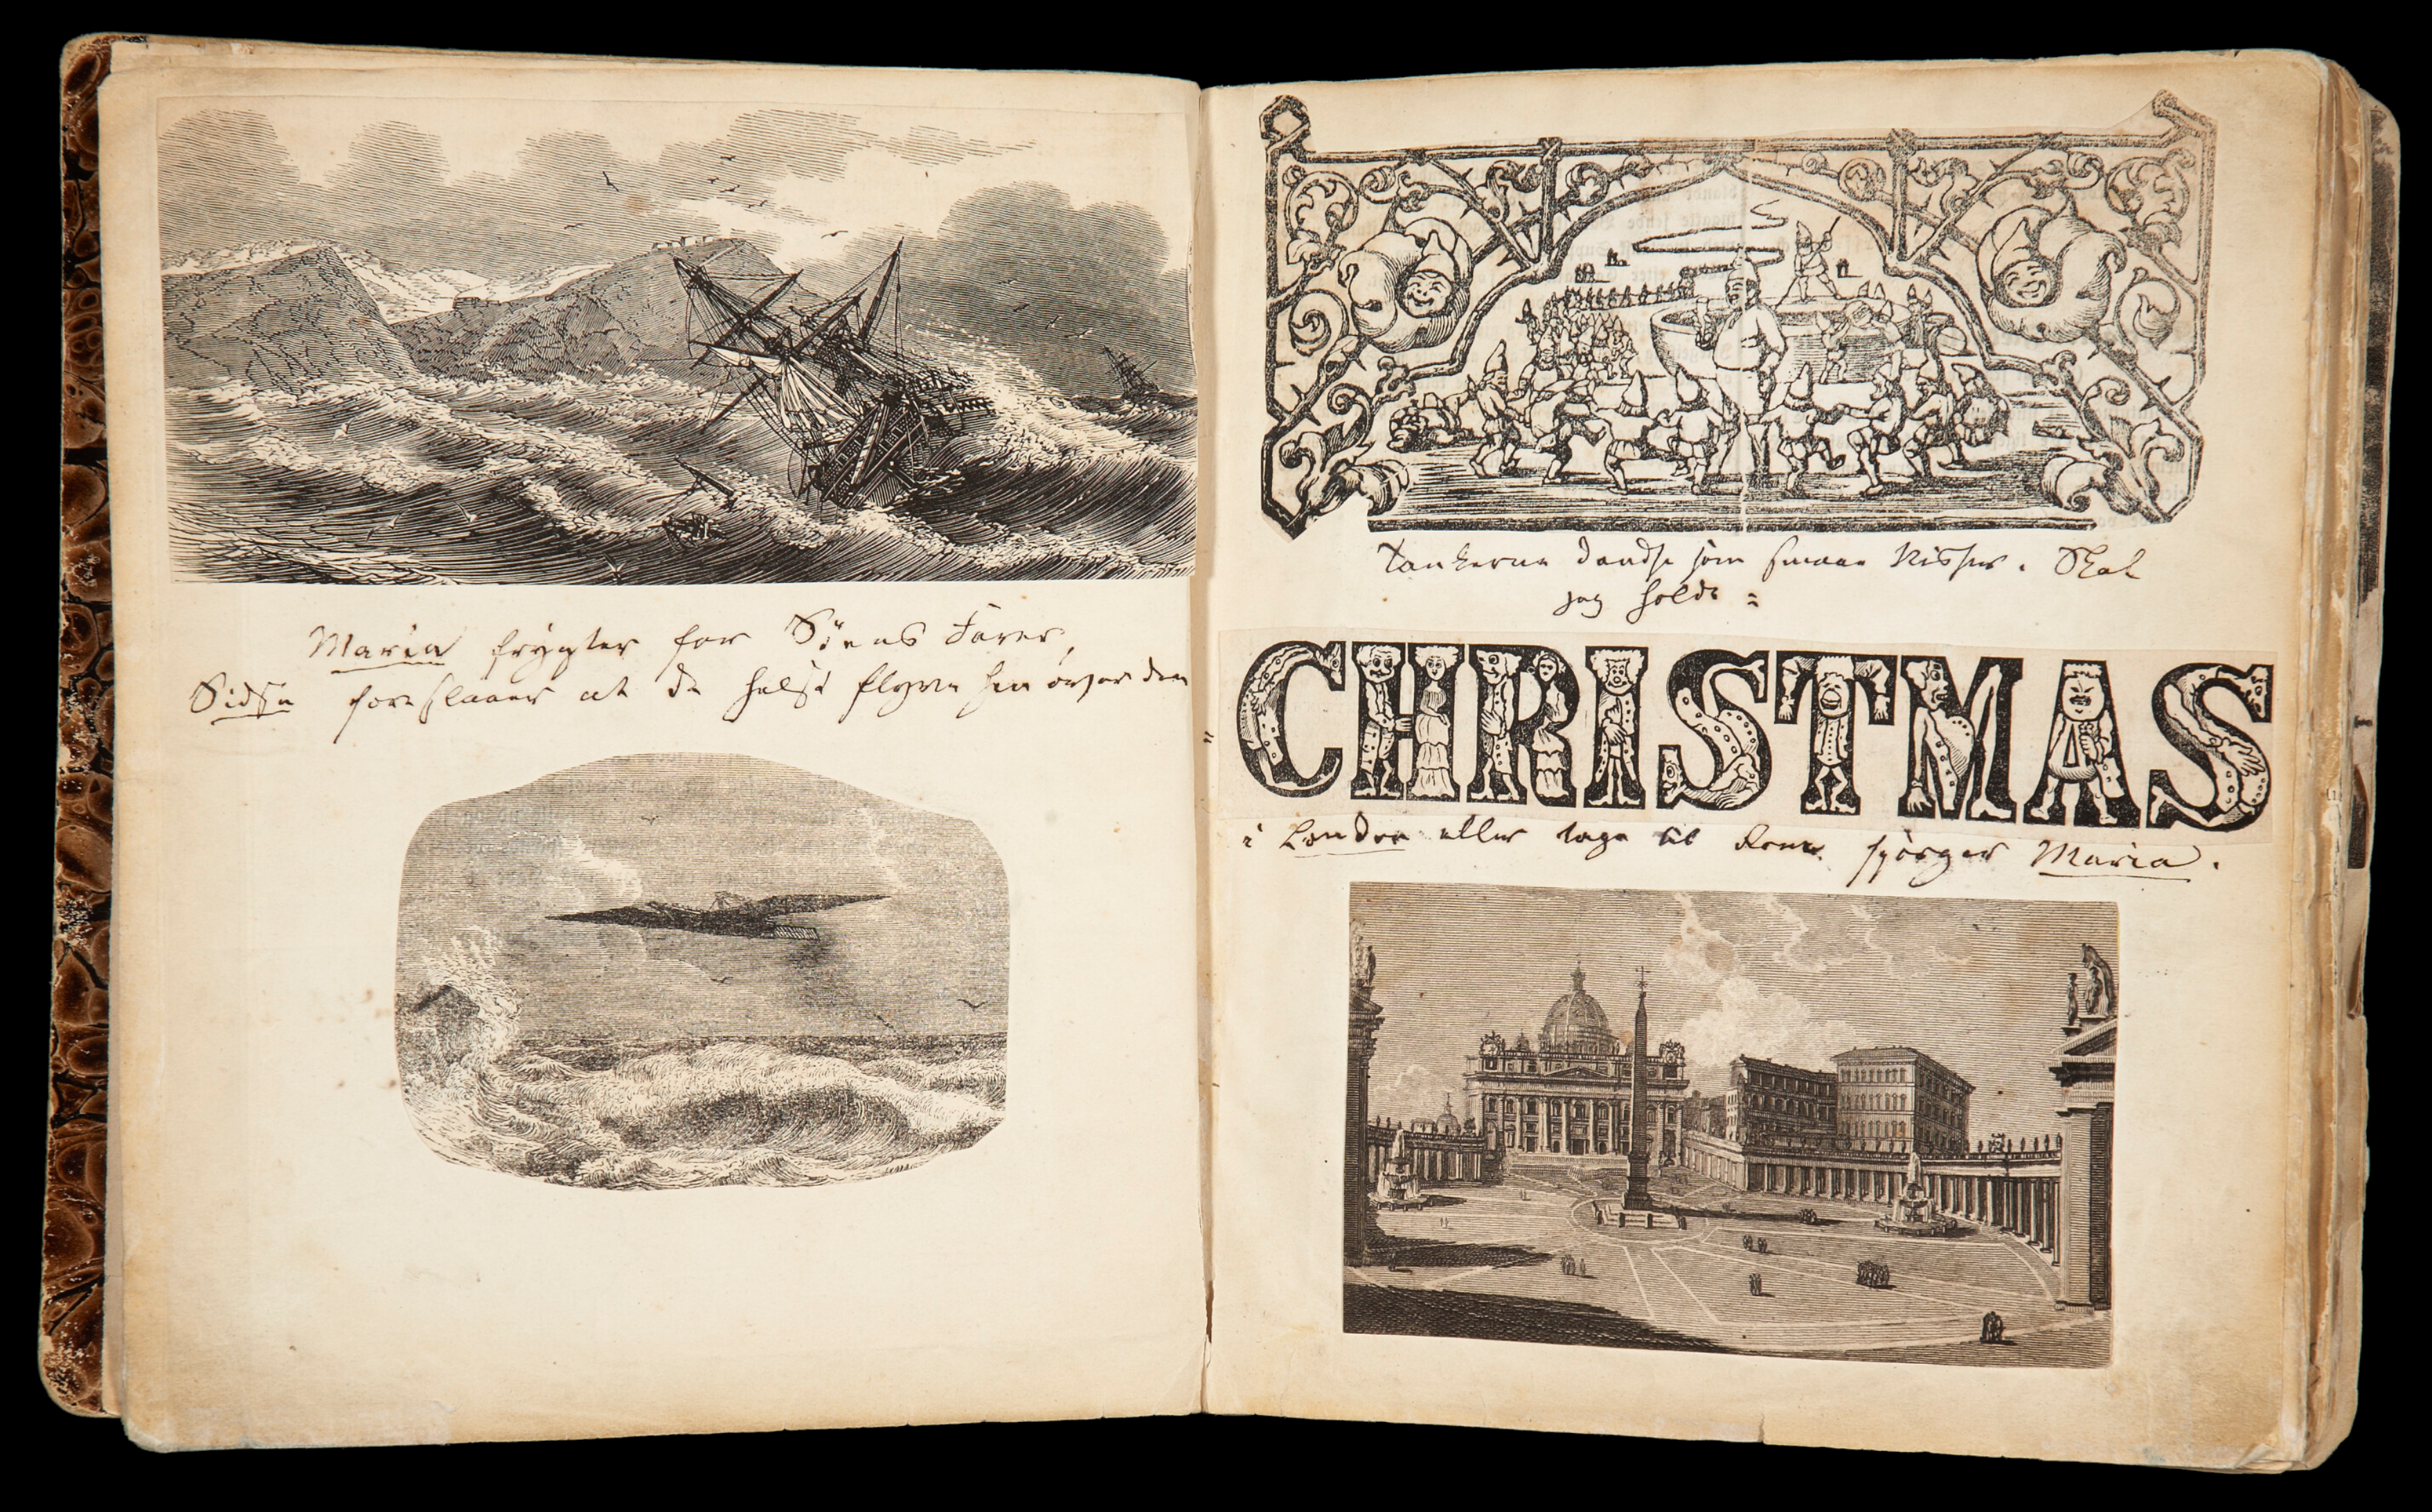 Maria frygter for Søens Farer,
Sidse foreslaaer at de helst flyve hen over den
Tankerne dandse som smaae Nisser. Skal
jeg holde =
CHRISTMAS
i London eller tage til Rom spørger Maria.